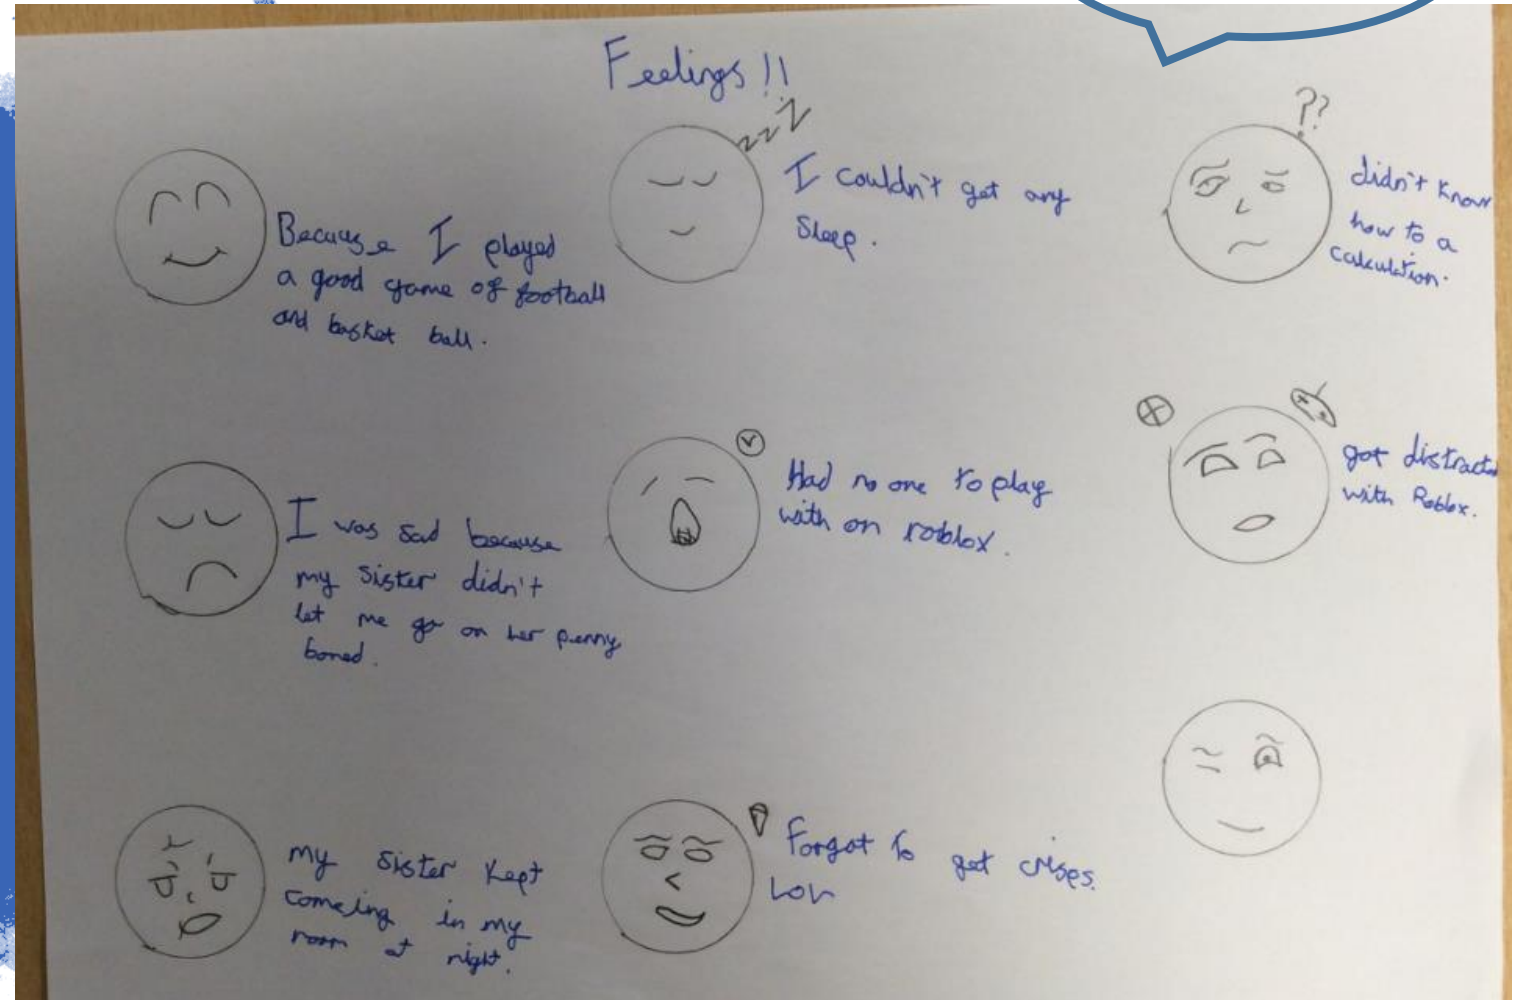 Feelings !!
zzZ
??
Because I played
a good game of football
and basket ball.
I couldn't get any
Sleep.
didn't know
how to a
calculation.
I was sad because
my sister didn't
let me go on her penny
boned.
Had no one to play
with on roblox.
got distracte
with Roblox.
my sister kept
comeing in my
room at night.
Forgot to get crisps.